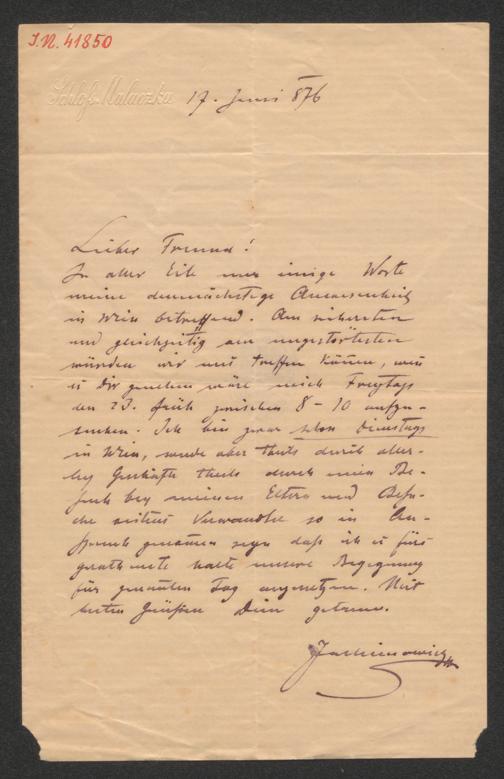 I.N. 41850
Schloß Malaczka
17. Juni 876
Lieber Freund!
In aller Eile nur einige Worte
meine demnächstige Anwesenheit
in Wien betreffend. Am sichersten
und gleichzeitig am ungestörtesten
würden wir uns treffen können, wenn
es Dir genehm wäre mich Freytags
den 23. früh zwischen 8 - 10 aufzu-
suchen. Ich bin zwar schon Dienstags
in Wien, werde aber theils durch aller-
ley Geschäfte theils durch mein Be-
such bey meinen Eltern und Besu-
che seitens Verwandte so in An-
spruch genommen seyn daß ich es fürs
gerathenste halte unsere Begegnung
für genannten Tag anzusetzen. Mit
besten Grüßen Dein getreuer